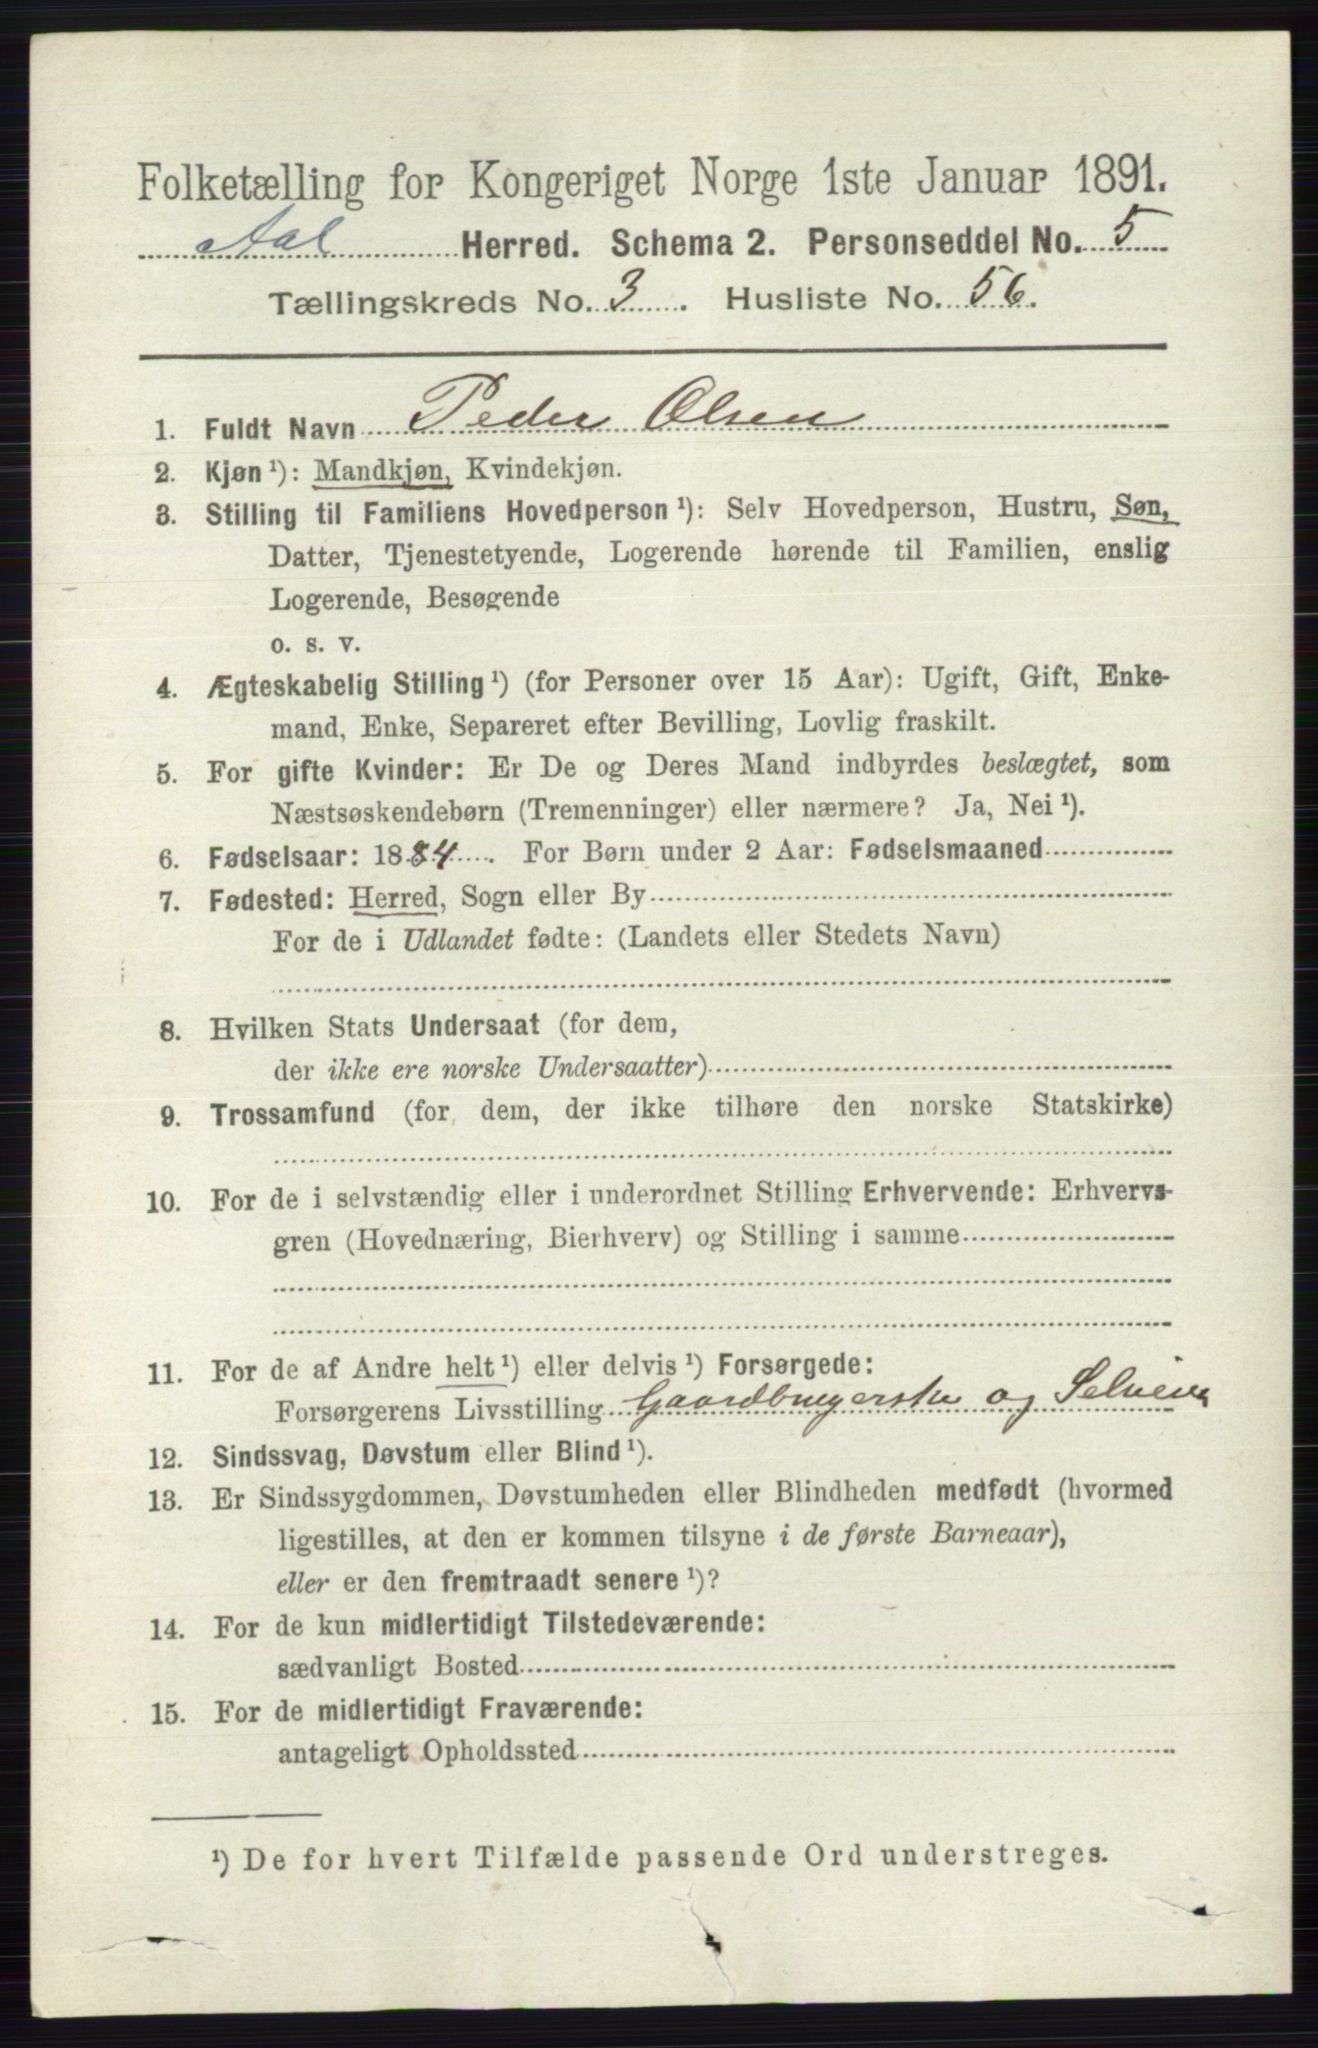 Folketælling for Kongeriget Norge 1ste Januar 1891.
Aal Herred. Schema 2. Personseddel No. 5
Tællingskreds No. 3. Husliste No. 56.
1. Fuldt Navn Peder Olsen
2. Kjøn ¹): Mandkjøn, Kvindekjøn.
3. Stilling til Familiens Hovedperson ¹): Selv Hovedperson, Hustru, Søn,
Datter, Tjenestetyende, Logerende hørende til Familien, enslig
Logerende, Besøgende
o. s. v.
4. Ægteskabelig Stilling ¹) (for Personer over 15 Aar): Ugift, Gift, Enke-
mand, Enke, Separeret efter Bevilling, Lovlig fraskilt.
5. For gifte Kvinder: Er De og Deres Mand indbyrdes beslægtet, som
Næstsøskendebørn (Tremenninger) eller nærmere? Ja, Nei ¹).
6. Fødselsaar: 1884. For Børn under 2 Aar: Fødselsmaaned
7. Fødested: Herred, Sogn eller By
For de i Udlandet fødte: (Landets eller Stedets Navn)
8. Hvilken Stats Undersaat (for dem,
der ikke ere norske Undersaatter)
9. Trossamfund (for dem, der ikke tilhøre den norske Statskirke)
10. For de i selvstændig eller i underordnet Stilling Erhvervende: Erhvervs-
gren (Hovednæring, Bierhverv) og Stilling i samme
11. For de af Andre helt ¹) eller delvis ¹) Forsørgede:
Forsørgerens Livsstilling Gaardbrugerske og Selveier
12. Sindssvag, Døvstum eller Blind ¹).
13. Er Sindssygdommen, Døvstumheden eller Blindheden medfødt (hvormed
ligestilles, at den er kommen tilsyne i de første Barneaar),
eller er den fremtraadt senere ¹)?
14. For de kun midlertidigt Tilstedeværende:
sædvanligt Bosted
15. For de midlertidigt Fraværende:
antageligt Opholdssted
¹) De for hvert Tilfælde passende Ord understreges.